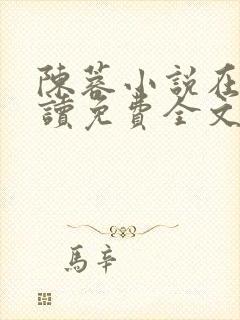 陳蓉小說在
讀免費全文
馬辛